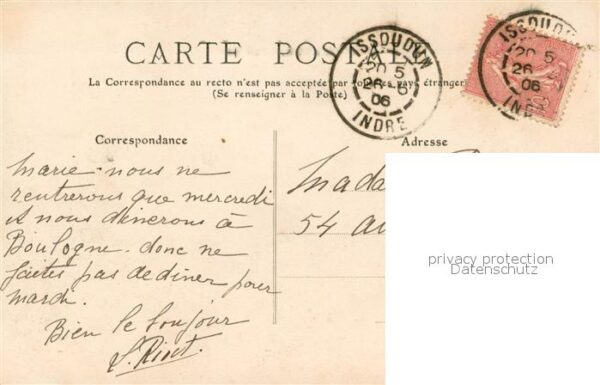 CARTE POSTALE
La Correspondance au recto n'est pas acceptée par tous les pays étrangers
(Se renseigner à la Poste)
ISSOUDUN
20 5
26
06
INDRE
ISSOUDUN
20 5
26
06
INDRE
Correspondance
Adresse
Marie. nous ne
rentrerons que mercredi
et nous dinerons à
Boulogne. donc ne
faites pas de diner pour
mardi.
Bien le bonjour
Mada
54
privacy protection
Datenschutz